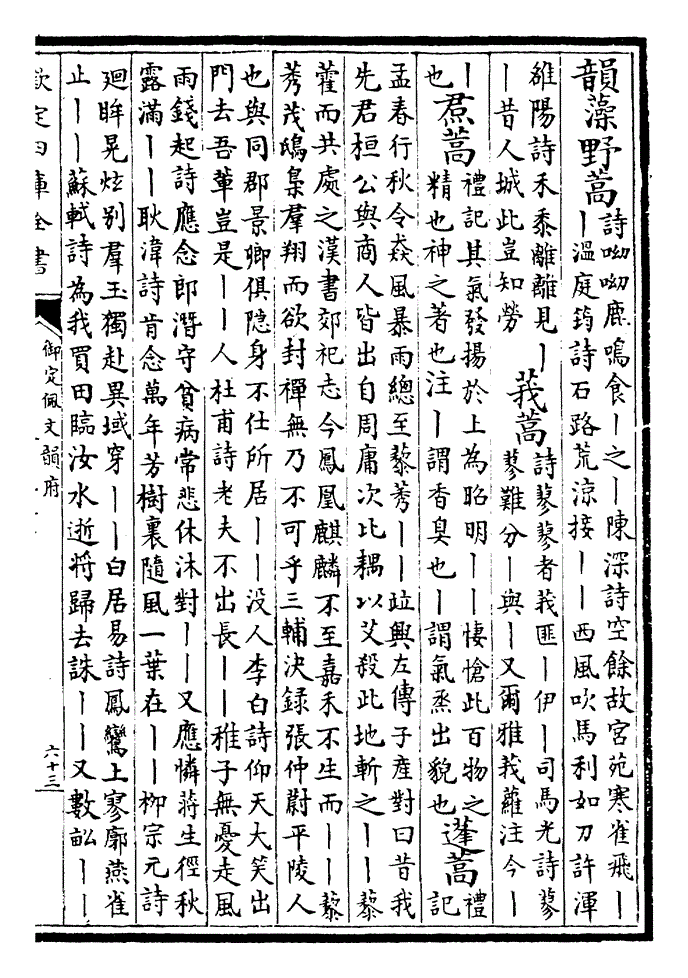 韻藻野蒿詩呦呦鹿鳴食丨之丨陳深詩空餘故宮苑寒雀飛丨
丨溫庭筠詩石路荒涼接丨丨西風吹馬利如刀許渾
雒陽詩禾黍離離見丨
丨昔人城此豈知勞
莪蒿詩蓼蓼者莪匪丨伊丨司馬光詩蓼
蓼難分丨與丨又爾雅莪蘿注今丨
丨
也
焄蒿禮記其氣發揚於上為昭明丨丨悽愴此百物之
精也神之著也注丨謂香臭也丨謂氣烝出貌也
蓬蒿禮
記
孟春行秋令猋風暴雨總至藜莠丨丨竝興左傳子產對曰昔我
先君桓公與商人皆出自周庸次比耦以艾殺此地斬之丨丨藜
藿而共處之漢書郊祀志今鳳凰麒麟不至嘉禾不生而丨丨藜
莠茂鴟梟羣翔而欲封禪無乃不可乎三輔決録張仲蔚平陵人
也與同郡景卿俱隐身不仕所居丨丨没人李白詩仰天大笑出
門去吾軰豈是丨丨人杜甫詩老夫不出長丨丨稚子無憂走風
雨錢起詩應念郎潛守貧病常悲休沐對丨丨又應憐蔣生徑秋
露滿丨丨耿湋詩肯念萬年芳樹裏隨風一葉在丨丨柳宗元詩
廻眸晃炫别羣玉獨赴異域穿丨丨白居易詩鳳鸞上寥廓燕雀
止丨丨蘇軾詩為我買田臨汝水逝將歸去誅丨丨又數畝丨丨
欽定四庫全書
御定佩文韻府
六十三